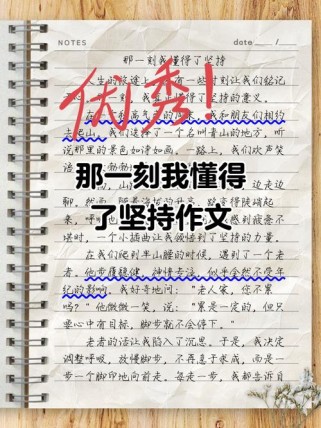 NOTES
date: /
那一刻我懂得了坚持
人生的旅途上,有一些时刻让我们铭记
坚持的意义。
在 高气 的 我和朋友们相约
去爬山。我们选择了一个名叫青山的地方,听
说那里的景色如诗如画。一路上,我们欢声笑
优秀!
那一刻我懂得
了坚持作文
边走边
聊。然而 腿变得
来,呼 感到疲惫不
堪时,一个小插曲让我领悟到了坚持的力量。
在我们爬到半山腰的时候,遇到了一个老
者。他步履稳健,神情专注,似乎全然不受年
纪的影响。我好奇地问:“老人家,您不累
吗?”他微微一笑,说:“累是一定的,但只
要心中有目标,脚步就不会停下。”
老者的话让我陷入了沉思。于是,我决定
调整呼吸,放慢脚步,不再急于求成,而是一
步一个脚印地向前走。每走一步,我都告诉自